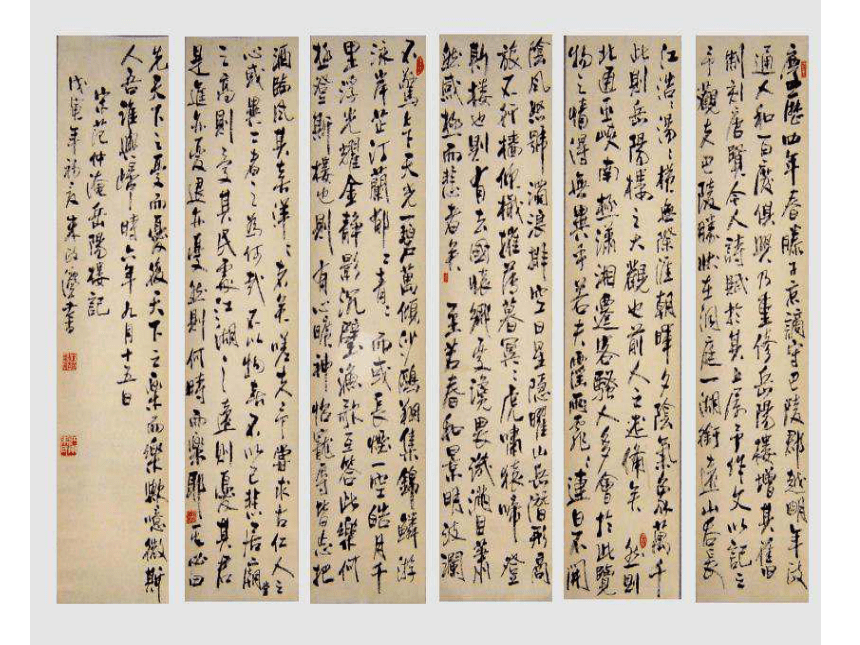 慶曆四年春滕子京謫守巴陵郡越明年政
通人和百廢俱興乃重修岳陽樓增其舊
制刻唐賢今人詩賦於其上屬予作文以記之
予觀夫巴陵勝狀在洞庭一湖銜遠山吞長
江浩々湯々橫無際涯朝暉夕陰氣象萬千
此則岳陽樓之大觀也前人之述備矣 然則
北通巫峽南極瀟湘遷客騷人多會於此覽
物之情得無異乎若夫霪雨霏々連日不開
陰風怒號濁浪排空日星隱曜山岳潛形商
旅不行檣傾楫摧薄暮冥々虎嘯猿啼登
斯樓也則有去國懷鄉憂讒畏譏滿目蕭
然感極而悲者矣 至若春和景明波瀾
不驚上下天光一碧萬頃沙鷗翔集錦鱗游
泳岸芷汀蘭郁々青々而或長煙一空皓月千
里浮光耀金靜影沉璧漁歌互答此樂何
極登斯樓也則有心曠神怡寵辱皆忘把
酒臨風其喜洋々者矣嗟夫予嘗求古仁人之
心或異二者之為何哉不以物喜不以己悲居廟堂
之高則憂其民處江湖之遠則憂其君
是進亦憂退亦憂然則何時而樂耶其必曰
先天下之憂而憂後天下之樂而樂歟噫微斯
人吾誰與歸時六年九月十五日
宋范仲淹岳陽樓記
戊寅年初夏朱政書